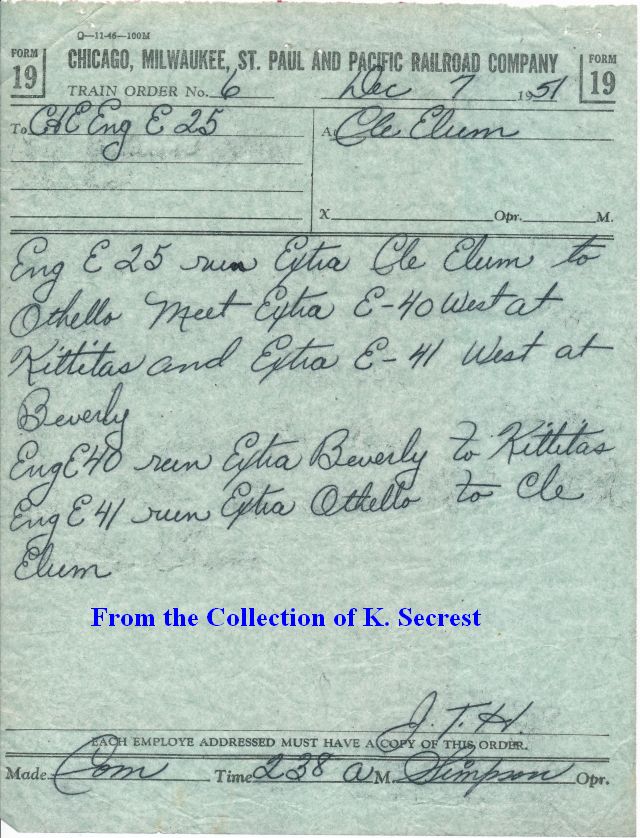 Q—11-46—100M
FORM 19
CHICAGO, MILWAUKEE, ST. PAUL AND PACIFIC RAILROAD COMPANY
FORM 19
TRAIN ORDER No. 6 Dec 7 1951
To C&E Eng E 25 At Cle Elum
X Opr. M.
Eng E 25 run Extra Cle Elum to
Othello Meet Extra E-40 West at
Kittitas and Extra E-41 West at
Beverly
Eng E 40 run Extra Beverly to Kittitas
Eng E 41 run Extra Othello to Cle
Elum
From the Collection of K. Secrest
J. T. H.
EACH EMPLOYE ADDRESSED MUST HAVE A COPY OF THIS ORDER.
Made Com Time 238 a M. Simpson Opr.